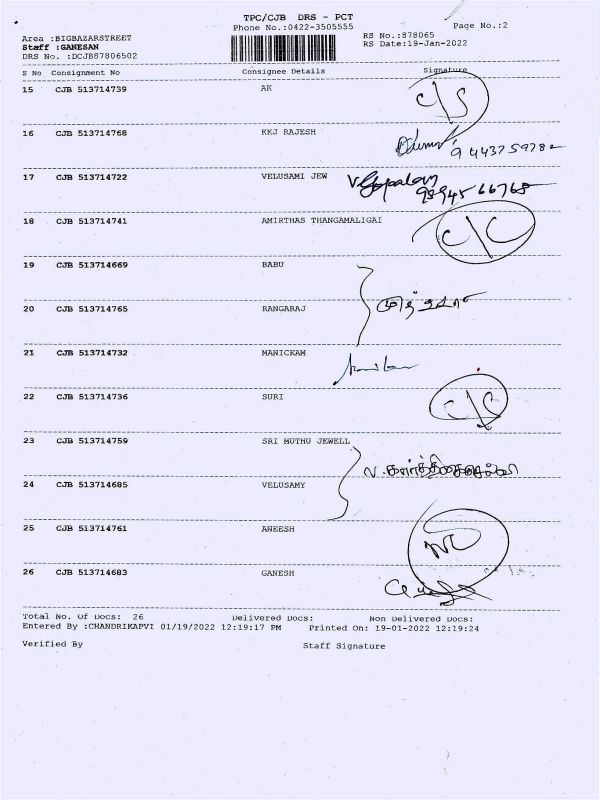 TPC/CJB DRS - PCT
Phone No.:0422-3505555 Page No.:2
Area :BIGBAZARSTREET RS No.:878065
Staff :GANESAN RS Date:19-Jan-2022
DRS No. :DCJB87806502
S No Consignment No Consignee Details Signature
15 CJB 513714739 AK C/S
16 CJB 513714768 KKJ RAJESH
9443759782
17 CJB 513714722 VELUSAMI JEW V.Gopalan
9894566768
18 CJB 513714741 AMIRTHAS THANGAMALIGAI C/C
19 CJB 513714669 BABU
20 CJB 513714765 RANGARAJ
21 CJB 513714732 MANICKAM
22 CJB 513714736 SURI C/S
23 CJB 513714759 SRI MUTHU JEWELL
24 CJB 513714685 VELUSAMY
25 CJB 513714761 ANEESH
26 CJB 513714683 GANESH
Total No. Of Docs: 26 Delivered Docs: Non Delivered Docs:
Entered By :CHANDRIKAPVI 01/19/2022 12:19:17 PM Printed On: 19-01-2022 12:19:24
Verified By Staff Signature